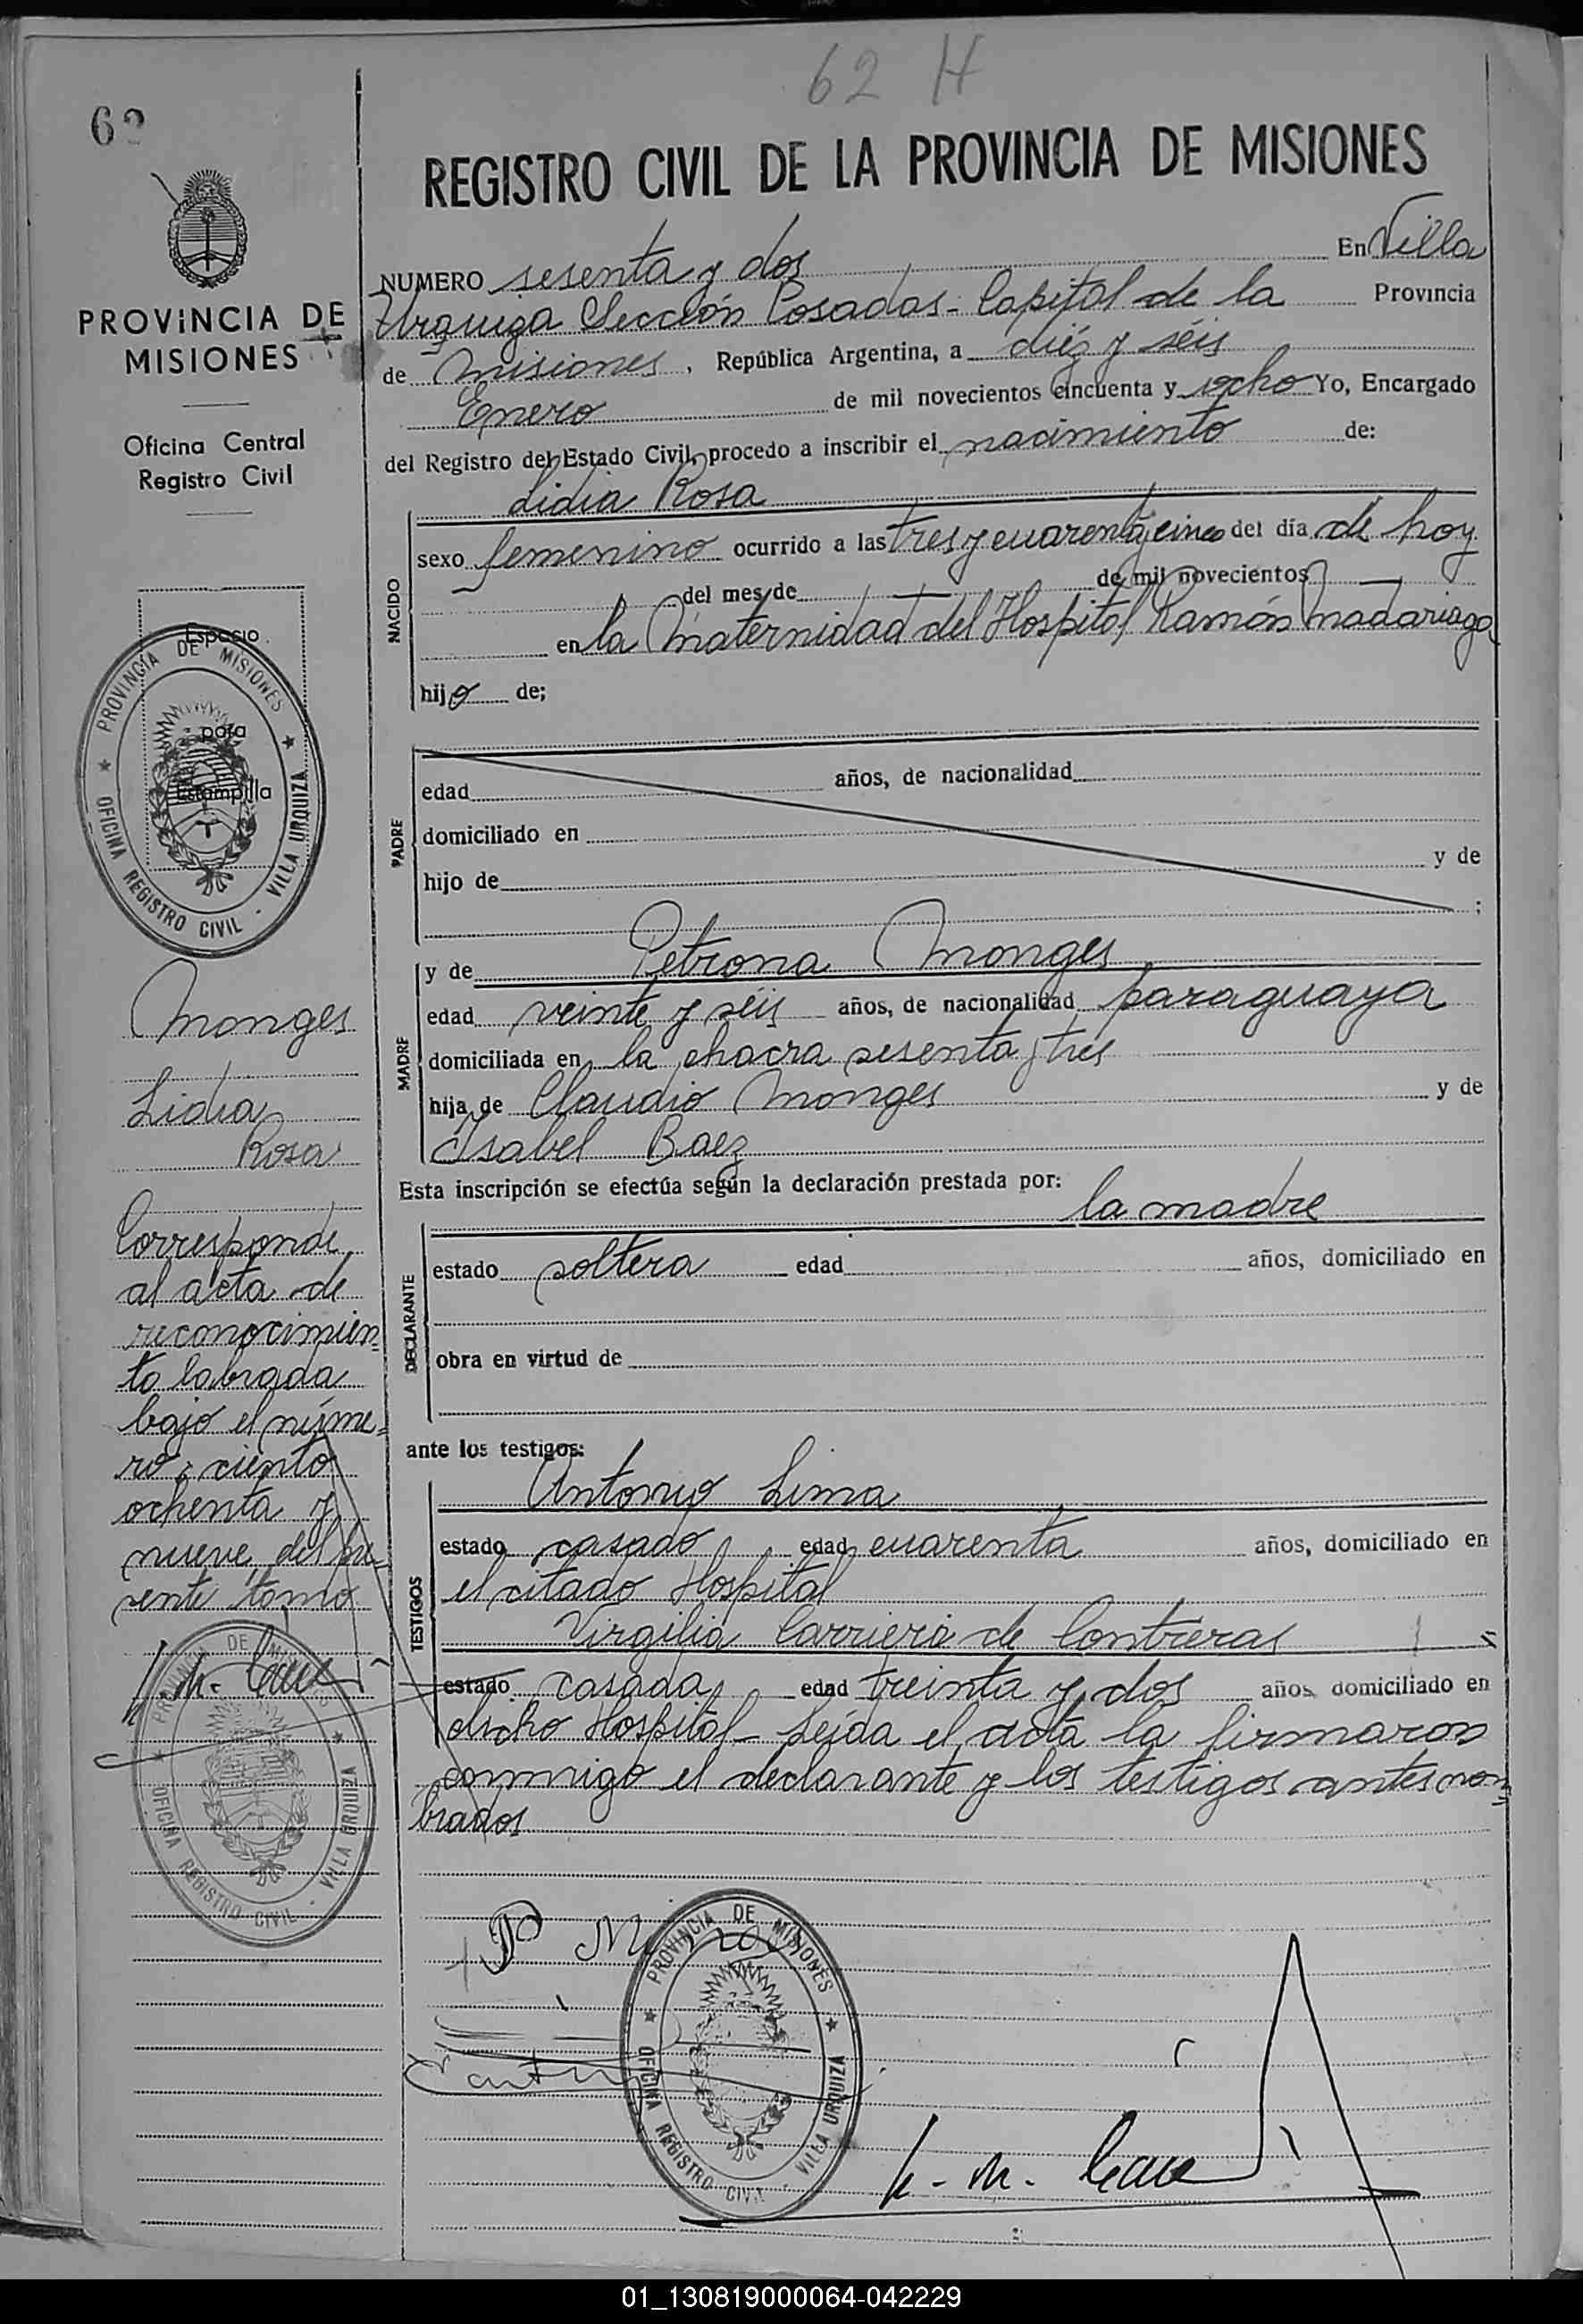 62 H
62
PROVINCIA DE
MISIONES
Oficina Central
Registro Civil
Espacio
para
Estampilla
PROVINCIA DE MISIONES
OFICINA REGISTRO CIVIL - VILLA URQUIZA
Monges
Lidia
Rosa
Corresponde
al acta de
reconocimien
to labrada
bajo el núme=
ro ciento
ochenta y
nueve, del pre=
sente tomo
PROVINCIA DE MISIONES
OFICINA REGISTRO CIVIL - VILLA URQUIZA
REGISTRO CIVIL DE LA PROVINCIA DE MISIONES
NUMERO sesenta y dos En Villa
Urquiza Sección Posadas - Capital de la Provincia
de Misiones, República Argentina, a diéz y séis
Enero de mil novecientos cincuenta y ocho Yo, Encargado
del Registro del Estado Civil, procedo a inscribir el nacimiento de:
Lidia Rosa
NACIDO
sexo femenino ocurrido a las tres y cuarenta y cinco del día de hoy
del mes de — de mil novecientos —
en la Maternidad del Hospital Ramón Madariaga
hijo de;
PADRE
edad años, de nacionalidad
domiciliado en
hijo de y de
;
MADRE
y de Petrona Monges
edad veinte y séis años, de nacionalidad paraguaya
domiciliada en la chacra sesenta y tres
hija de Claudio Monges y de
Isabel Baez
Esta inscripción se efectúa según la declaración prestada por:
la madre
DECLARANTE
estado soltera edad años, domiciliado en
obra en virtud de
ante los testigos:
TESTIGOS
Antonio Lima
estado casado edad cuarenta años, domiciliado en
el citado Hospital
Virgilia Carriera de Contreras
estado casada edad treinta y dos años domiciliado en
dicho Hospital - Leída el acta la firmaron
conmigo el declarante y los testigos antes nom=
brados
P M
PROVINCIA DE MISIONES
OFICINA REGISTRO CIVIL - VILLA URQUIZA
01_130819000064-042229